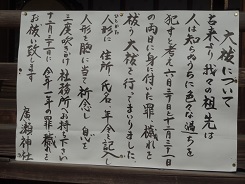 大祓について
古来より我々の祖先は
人は知らぬうちに色々な過ちを
犯すと考え六月三十日と十二月三十一日
の両日に身に付いた罪、穢れを
祓う大祓を行ってまいりました。
人形に住所、氏名、年令を記し
人形を胸に当て祈念し、息を
三度吹きかけ社務所へお持ち下さい
十二月三十一日に今年一年の罪、穢れを
お祓い致します
廣瀬神社